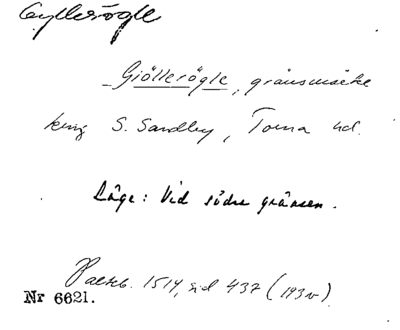 Gyllerögle
Giöllerögle, gränsmärke
kring S. Sandby, Torna hd.
Läge: Vid södra gränsen.
Palteb. 1514, sid 437 (193v)
Nr 6621.